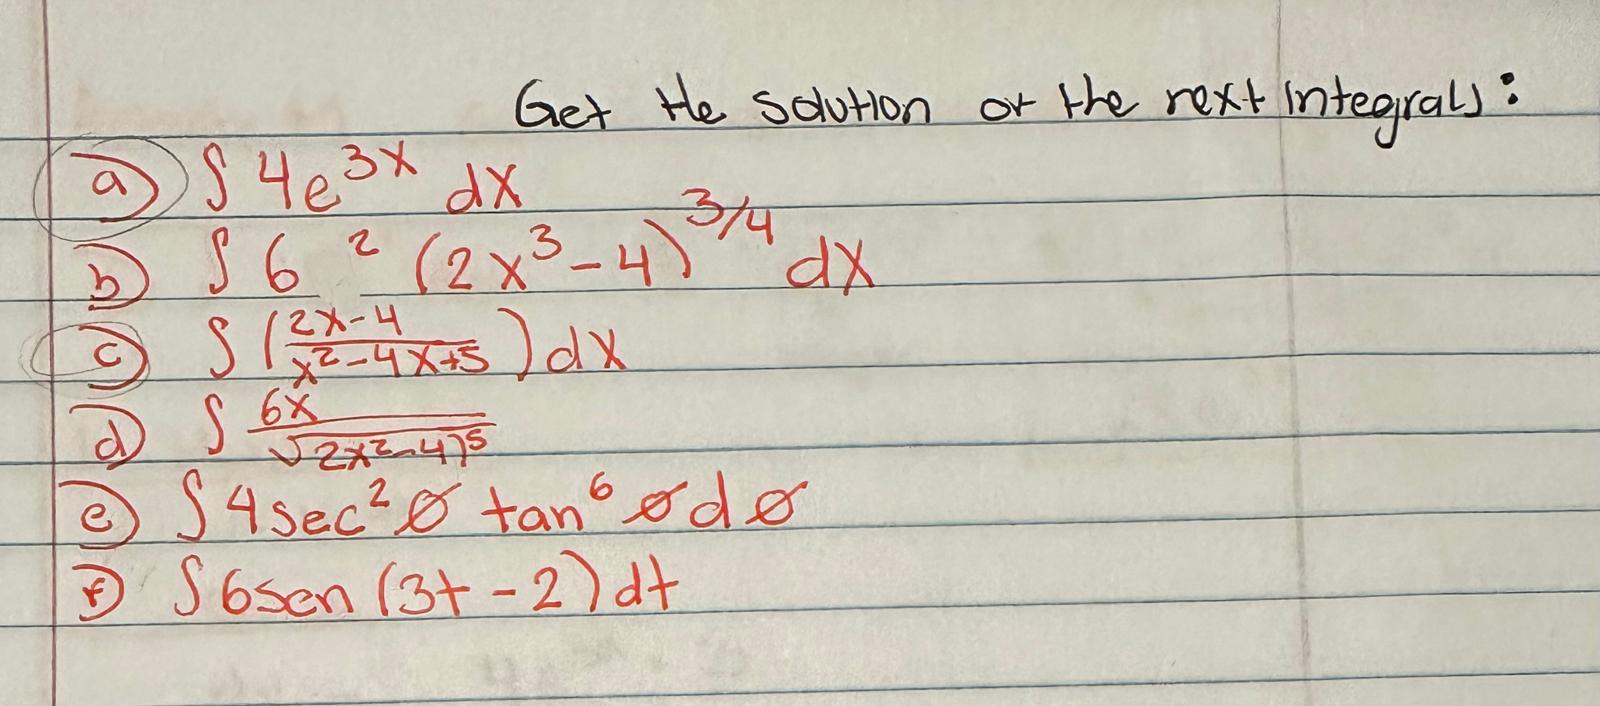 Get the solution of the next integrals:
a) ∫ 4e^{3x} dx
b) ∫ 6 ² (2x³-4)^{3/4} dx
c) ∫ (\frac{2x-4}{x²-4x+5}) dx
d) ∫ \frac{6x}{√2x²-4)⁵}
e) ∫ 4sec²Ø tan⁶ Ø dØ
f) ∫ 6sen (3t-2) dt